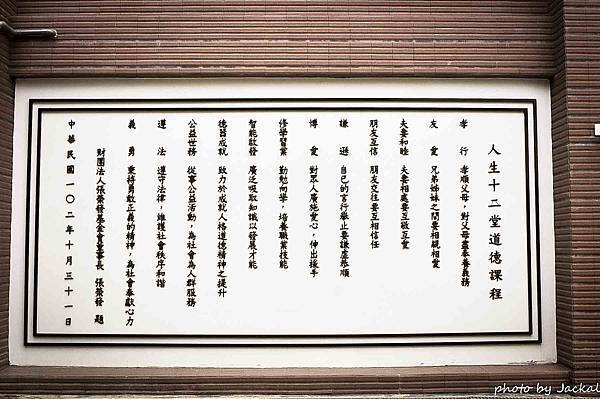 人生十二堂道德課程
孝行 孝順父母，對父母盡奉養義務
友愛 兄弟姊妹之間要相親相愛
夫妻和睦 夫妻相處要互敬互愛
朋友互信 朋友交往要互相信任
謙遜 自己的言行舉止要謙虛恭順
博愛 對眾人廣施愛心，伸出援手
修學習業 勤勉向學，培養職業技能
智能啟發 廣泛吸取知識以發展才能
德器成就 致力於成就人格道德精神之提升
公益世務 從事公益活動，為社會為人群服務
遵法 遵守法律，維護社會秩序和諧
義勇 秉持勇敢正義的精神，為社會奉獻心力
財團法人張榮發基金會董事長 張榮發 題
中華民國一〇二年十月三十一日
photo by Jackal